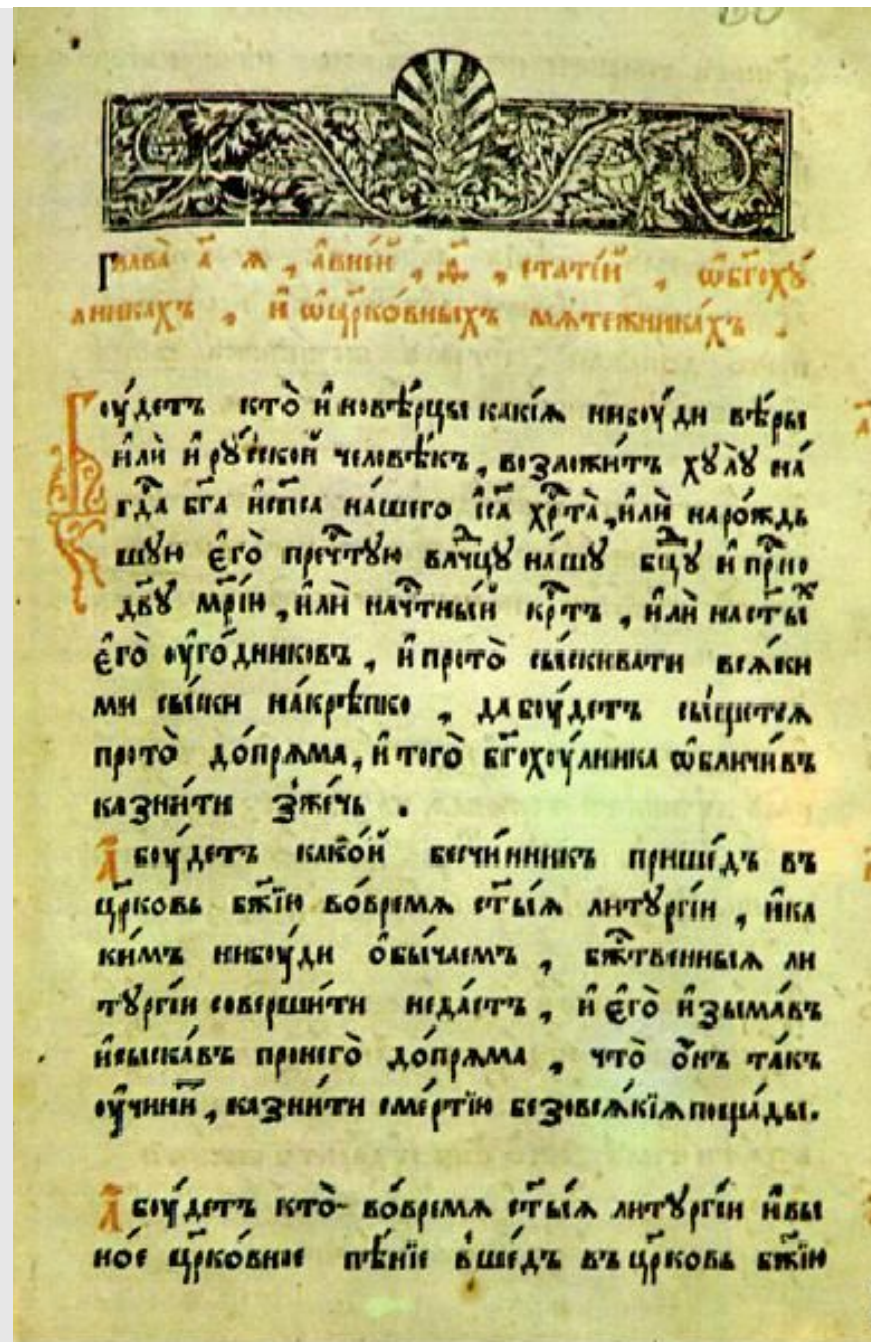 Глава̀ а҃ я , а҆вне́й , ѳ҃ , статі́й , ѡ҆бг҃охꙋ́
лникахъ , и҆ ѡ҆цр҃ко́вныхъ мѧте́жника́хъ .
Боу́детъ кто̀ и҆новѣ́рцы какі́ѧ нибоу́ди вѣ́ры
и҆лѝ и҆ рꙋ́сской человѣ́къ , возложи́тъ хꙋлꙋ̀ на́
гдⷭ҇а бг҃а и҆сп҃са на́шего і҆с҃а хрⷭ҇та̀ , и҆лѝ наро́ждь
шꙋю є҆го̀ пречⷭ҇тꙋю влⷣчцꙋ на́шꙋ бц҃ꙋ и҆ прⷭ҇но
дв҃ꙋ мр҃і́ю , и҆лѝ начⷭ҇тны́й крⷭ҇тъ , и҆лѝ наст҃ы́ⷯ
є҆го̀ оу҆го́дниковъ , и҆ прото̀ сы́скивати всѧ́ки
ми сы́ски на́крѣпко , да боу́детъ сы́щетсѧ
прото̀ до́прѧма , и҆ того̀ бг҃охоу́лника ѡ҆бличи́въ
казни́ти зже́чь .
А҆ боу́детъ како́й бесчи́нникъ прише́дъ въ
цр҃ковь бж҃ію во́времѧ ст҃ы́ѧ литꙋргі́и , и҆ка
ки́мъ нибоу́ди ѻ҆бы́чаемъ , бжⷭ҇твенныѧ ли
тꙋргі́и соверши́ти неда́стъ , и҆ є҆го̀ и҆зыма́въ
и҆сыска́въ пронего̀ до́прѧма , что̀ ѻ҆́нъ та́къ
оу҆чини́т , казни́ти сме́ртію безовсѧ́кіѧ поща́ды .
А҆ боу́детъ кто̀ во́времѧ ст҃ы́ѧ литꙋргі́и и҆вы
но́е цр҃ко́вное пѣ́ніе вше́дъ въ цр҃ковь бж҃ію